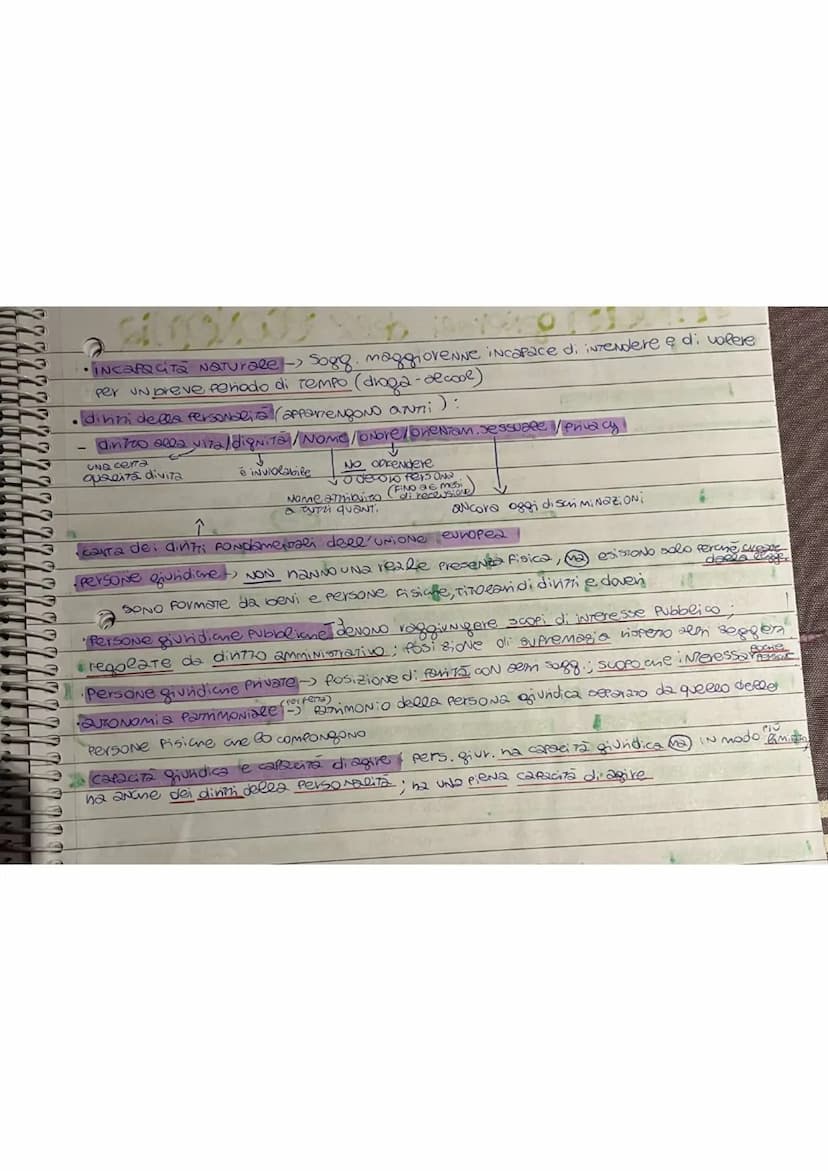 • INCAPACITÀ NATURALE -> Sogg. maggiorenne incapace di intendere e di volere
per un breve periodo di tempo (droga - alcool)
• diritti della personalità (appartengono a tutti):
- diritto alla vita/dignità/Nome/onore/orientam. sessuale/privacy
una certa
qualità di vita
è inviolabile
No offendere
o decoro persona
(fino a 6 mesi
di reclusione)
Nome attribuito
a tutti quanti.
ancora oggi discriminazioni
carta dei diritti fondamentali dell'unione europea
persone giuridiche -> NON hanno una reale presenza fisica, ma esistono solo perché create
dalla legge.
sono formate da beni e persone fisiche, titolari di diritti e doveri
• Persone giuridiche pubbliche - devono raggiungere scopi di interesse pubblico;
regolate da diritto amministrativo; posizione di supremazia rispetto altri soggetti
• persone giuridiche private -> posizione di parità con altri sogg.; scopo che interessa poche
persone
• autonomia patrimoniale (perfetta) -> patrimonio della persona giuridica separato da quello delle
persone fisiche che lo compongono
capacità giuridica e capacità di agire: pers. giur. ha capacità giuridica ma in modo più
limitato,
ha anche dei diritti della personalità; ha una piena capacità di agire